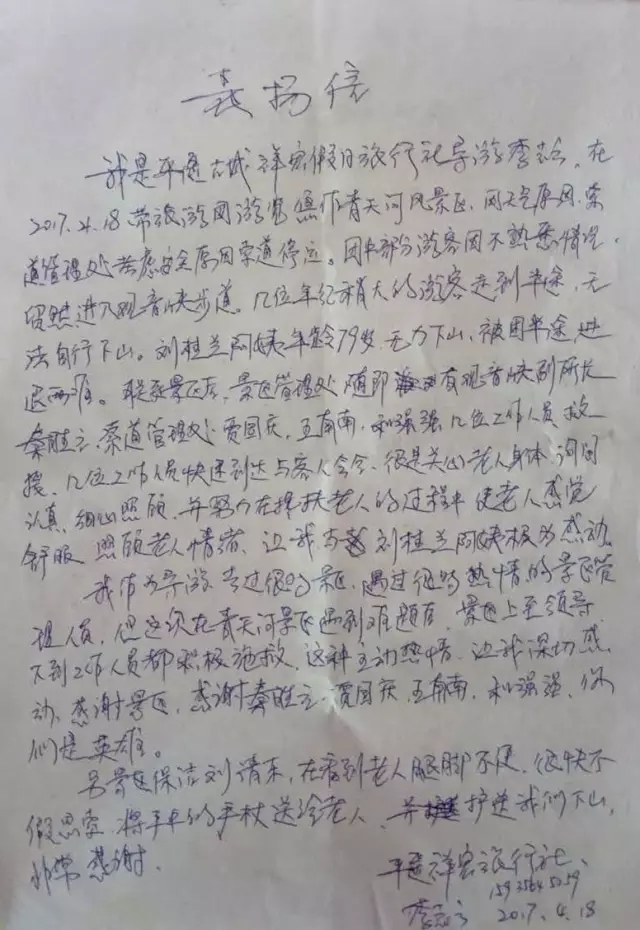 表扬信
我是平遥古城祥宏假日旅行社导游李志云，在
2017.4.18带旅游团游览焦作青天河风景区，因天气原因，索
道管理处考虑安全原因索道停运。团中部分游客因不熟悉情况，
贸然进入观音快步道。几位年纪稍大的游客走到半途，无
法自行下山。刘桂兰阿姨年龄79岁，无力下山，被困半途，进
退两难。联系景区后，景区管理处随即有观音快到所长
秦胜主，索道管理处贾国庆，王南南，和强强几位工作人员救
援，几位工作人员快速到达与客人会合，很是关心老人身体，询问
认真，细心照顾，并努力在搀扶老人的过程中使老人感觉
舒服，照顾老人情绪，让我与刘桂兰阿姨极为感动。
我作为导游，去过很多景区，遇过很多热情的景区管
理人员，但这次在青天河景区遇到难题后，景区上至领导，
下到工作人员都积极施救，这种主动热情，让我深切感
动，感谢景区，感谢秦胜主，贾国庆，王南南，和强强，你
们是英雄。
另景区保洁刘清东，在看到老人腿脚不便，很快不
假思索，将手中的手杖送给老人，并护送我们下山，
非常感谢。
平遥祥宏旅行社
2017.4.18